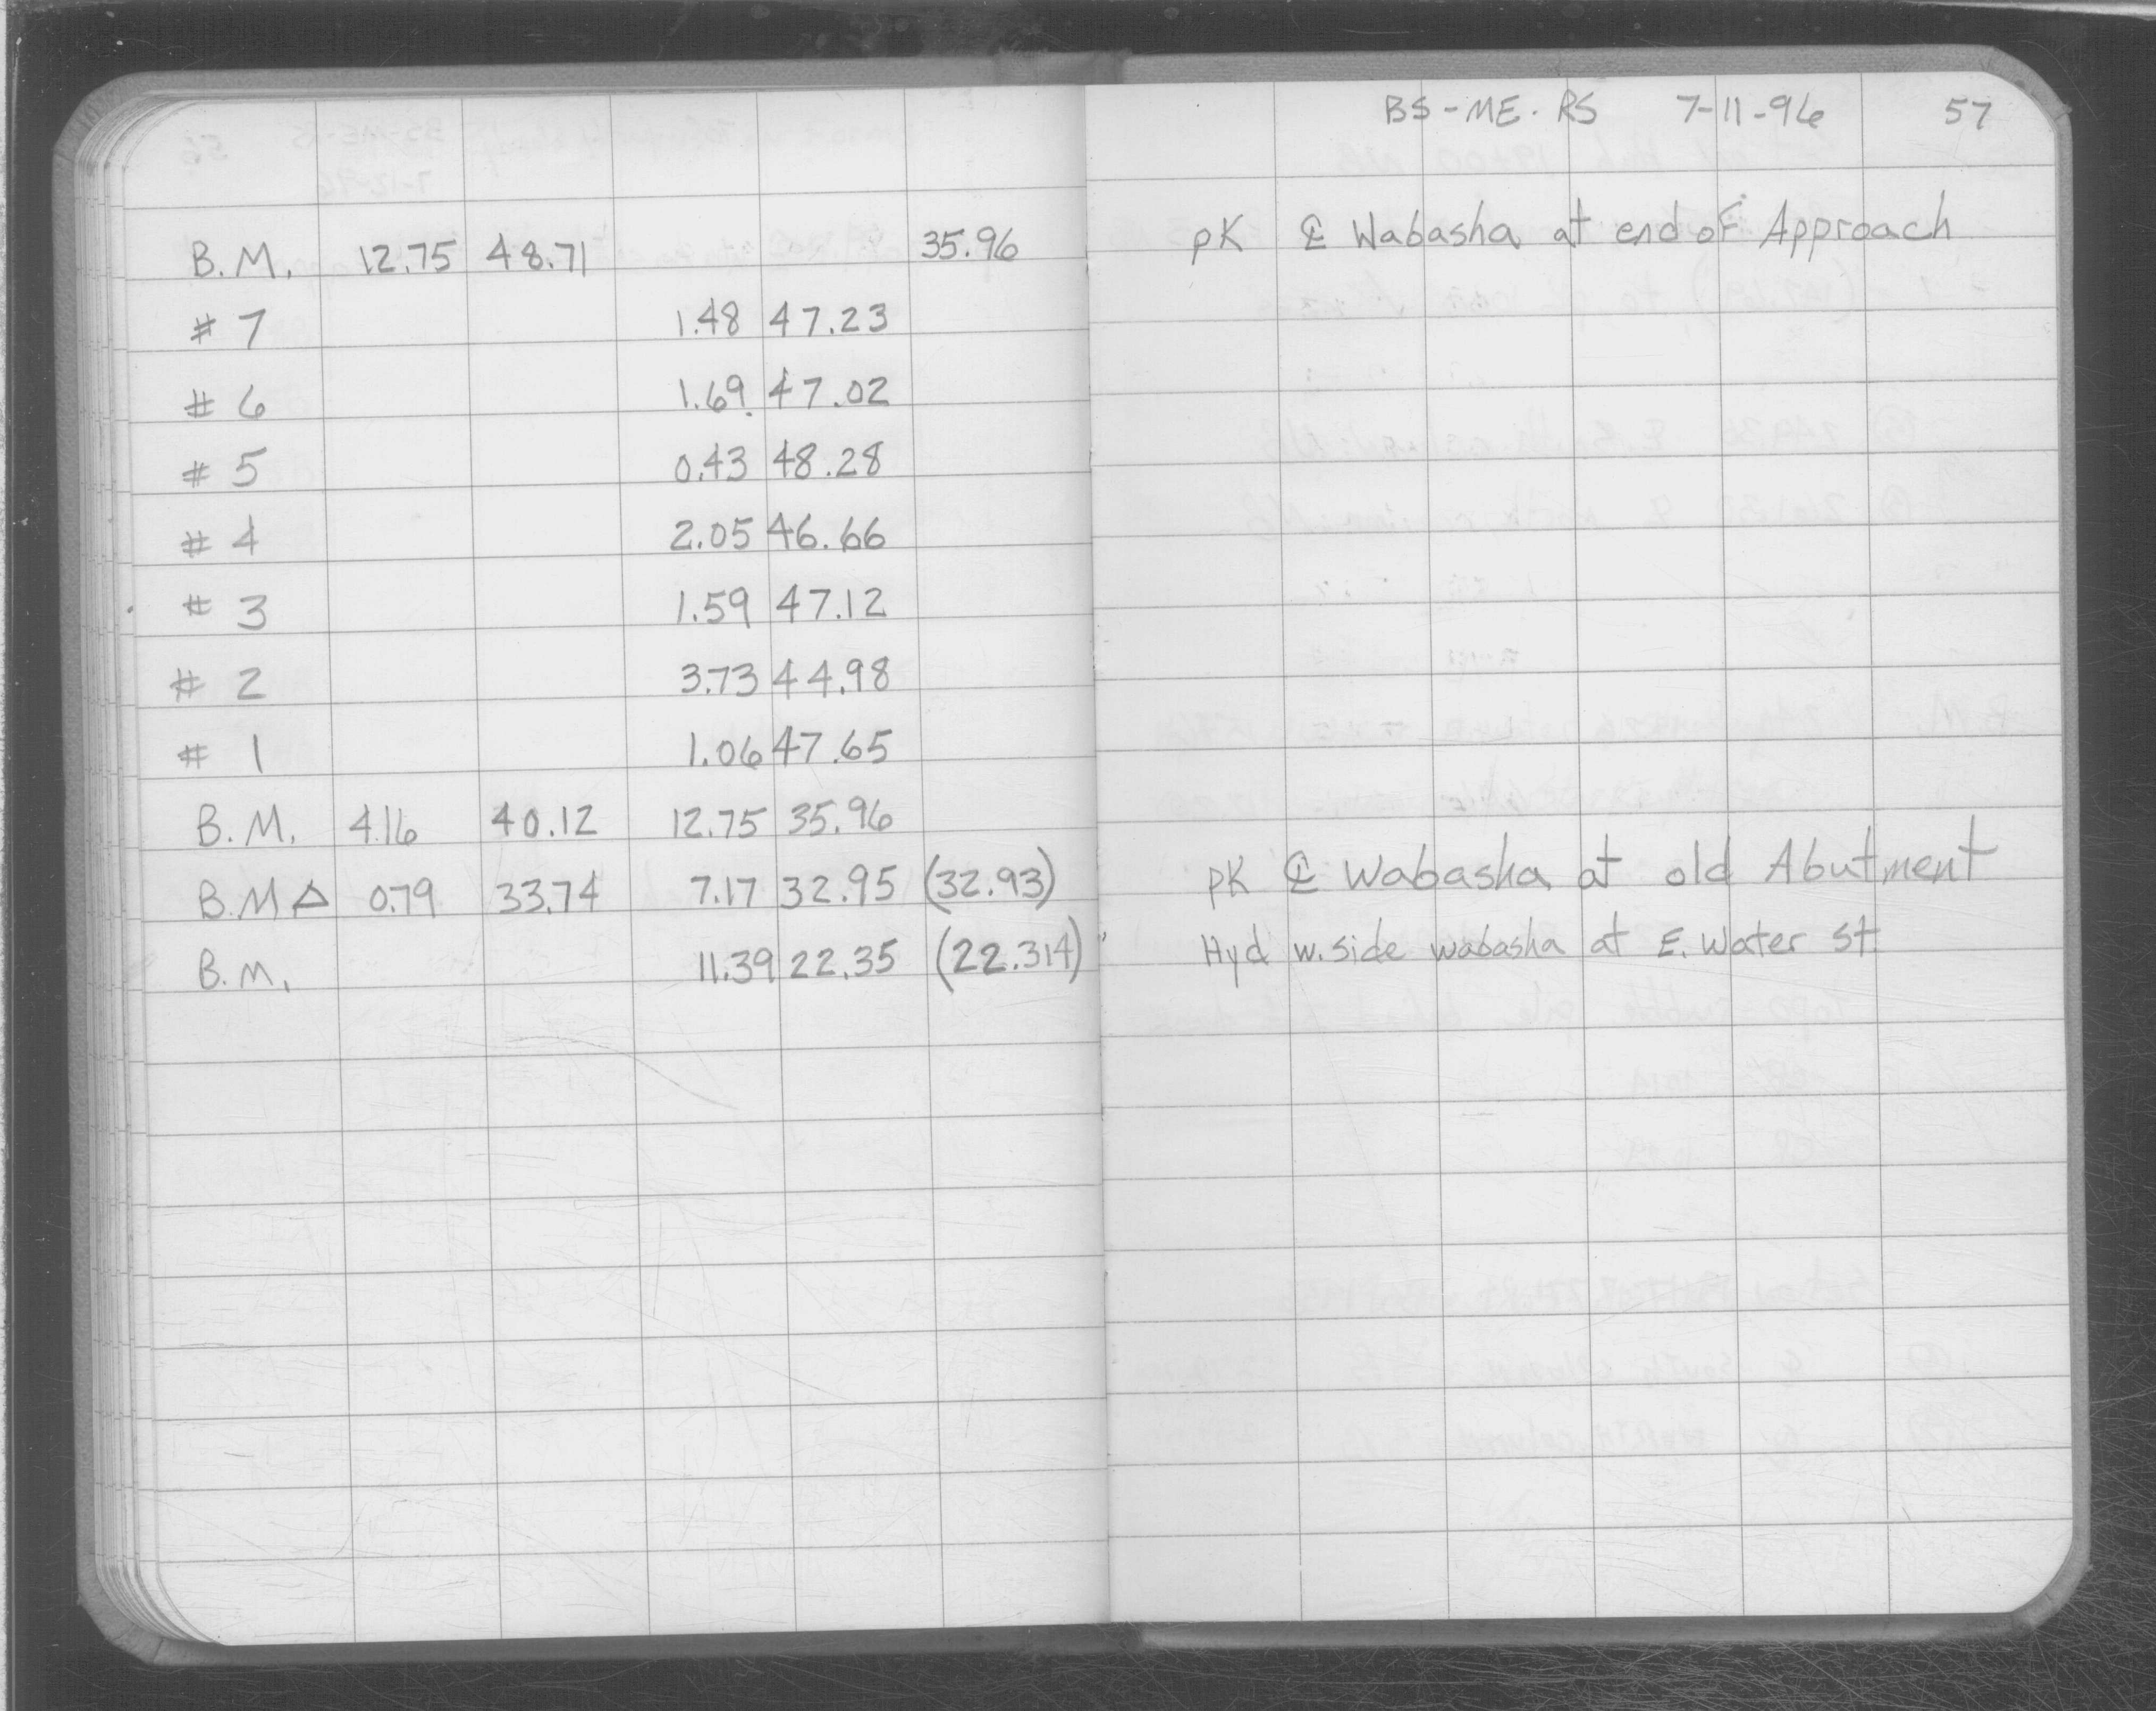 BS-ME. RS 7-11-96 57
B.M. 12.75 48.71 35.96 PK ℄ Wabasha at end of Approach
# 7 1.48 47.23
# 6 1.69 47.02
# 5 0.43 48.28
# 4 2.05 46.66
# 3 1.59 47.12
# 2 3.73 44.98
# 1 1.06 47.65
B.M. 4.16 40.12 12.75 35.96
B.M △ 0.79 33.74 7.17 32.95 (32.93) PK ℄ Wabasha at old Abutment
B.M. 11.39 22.35 (22.314) Hyd W. Side Wabasha at E. Water St.